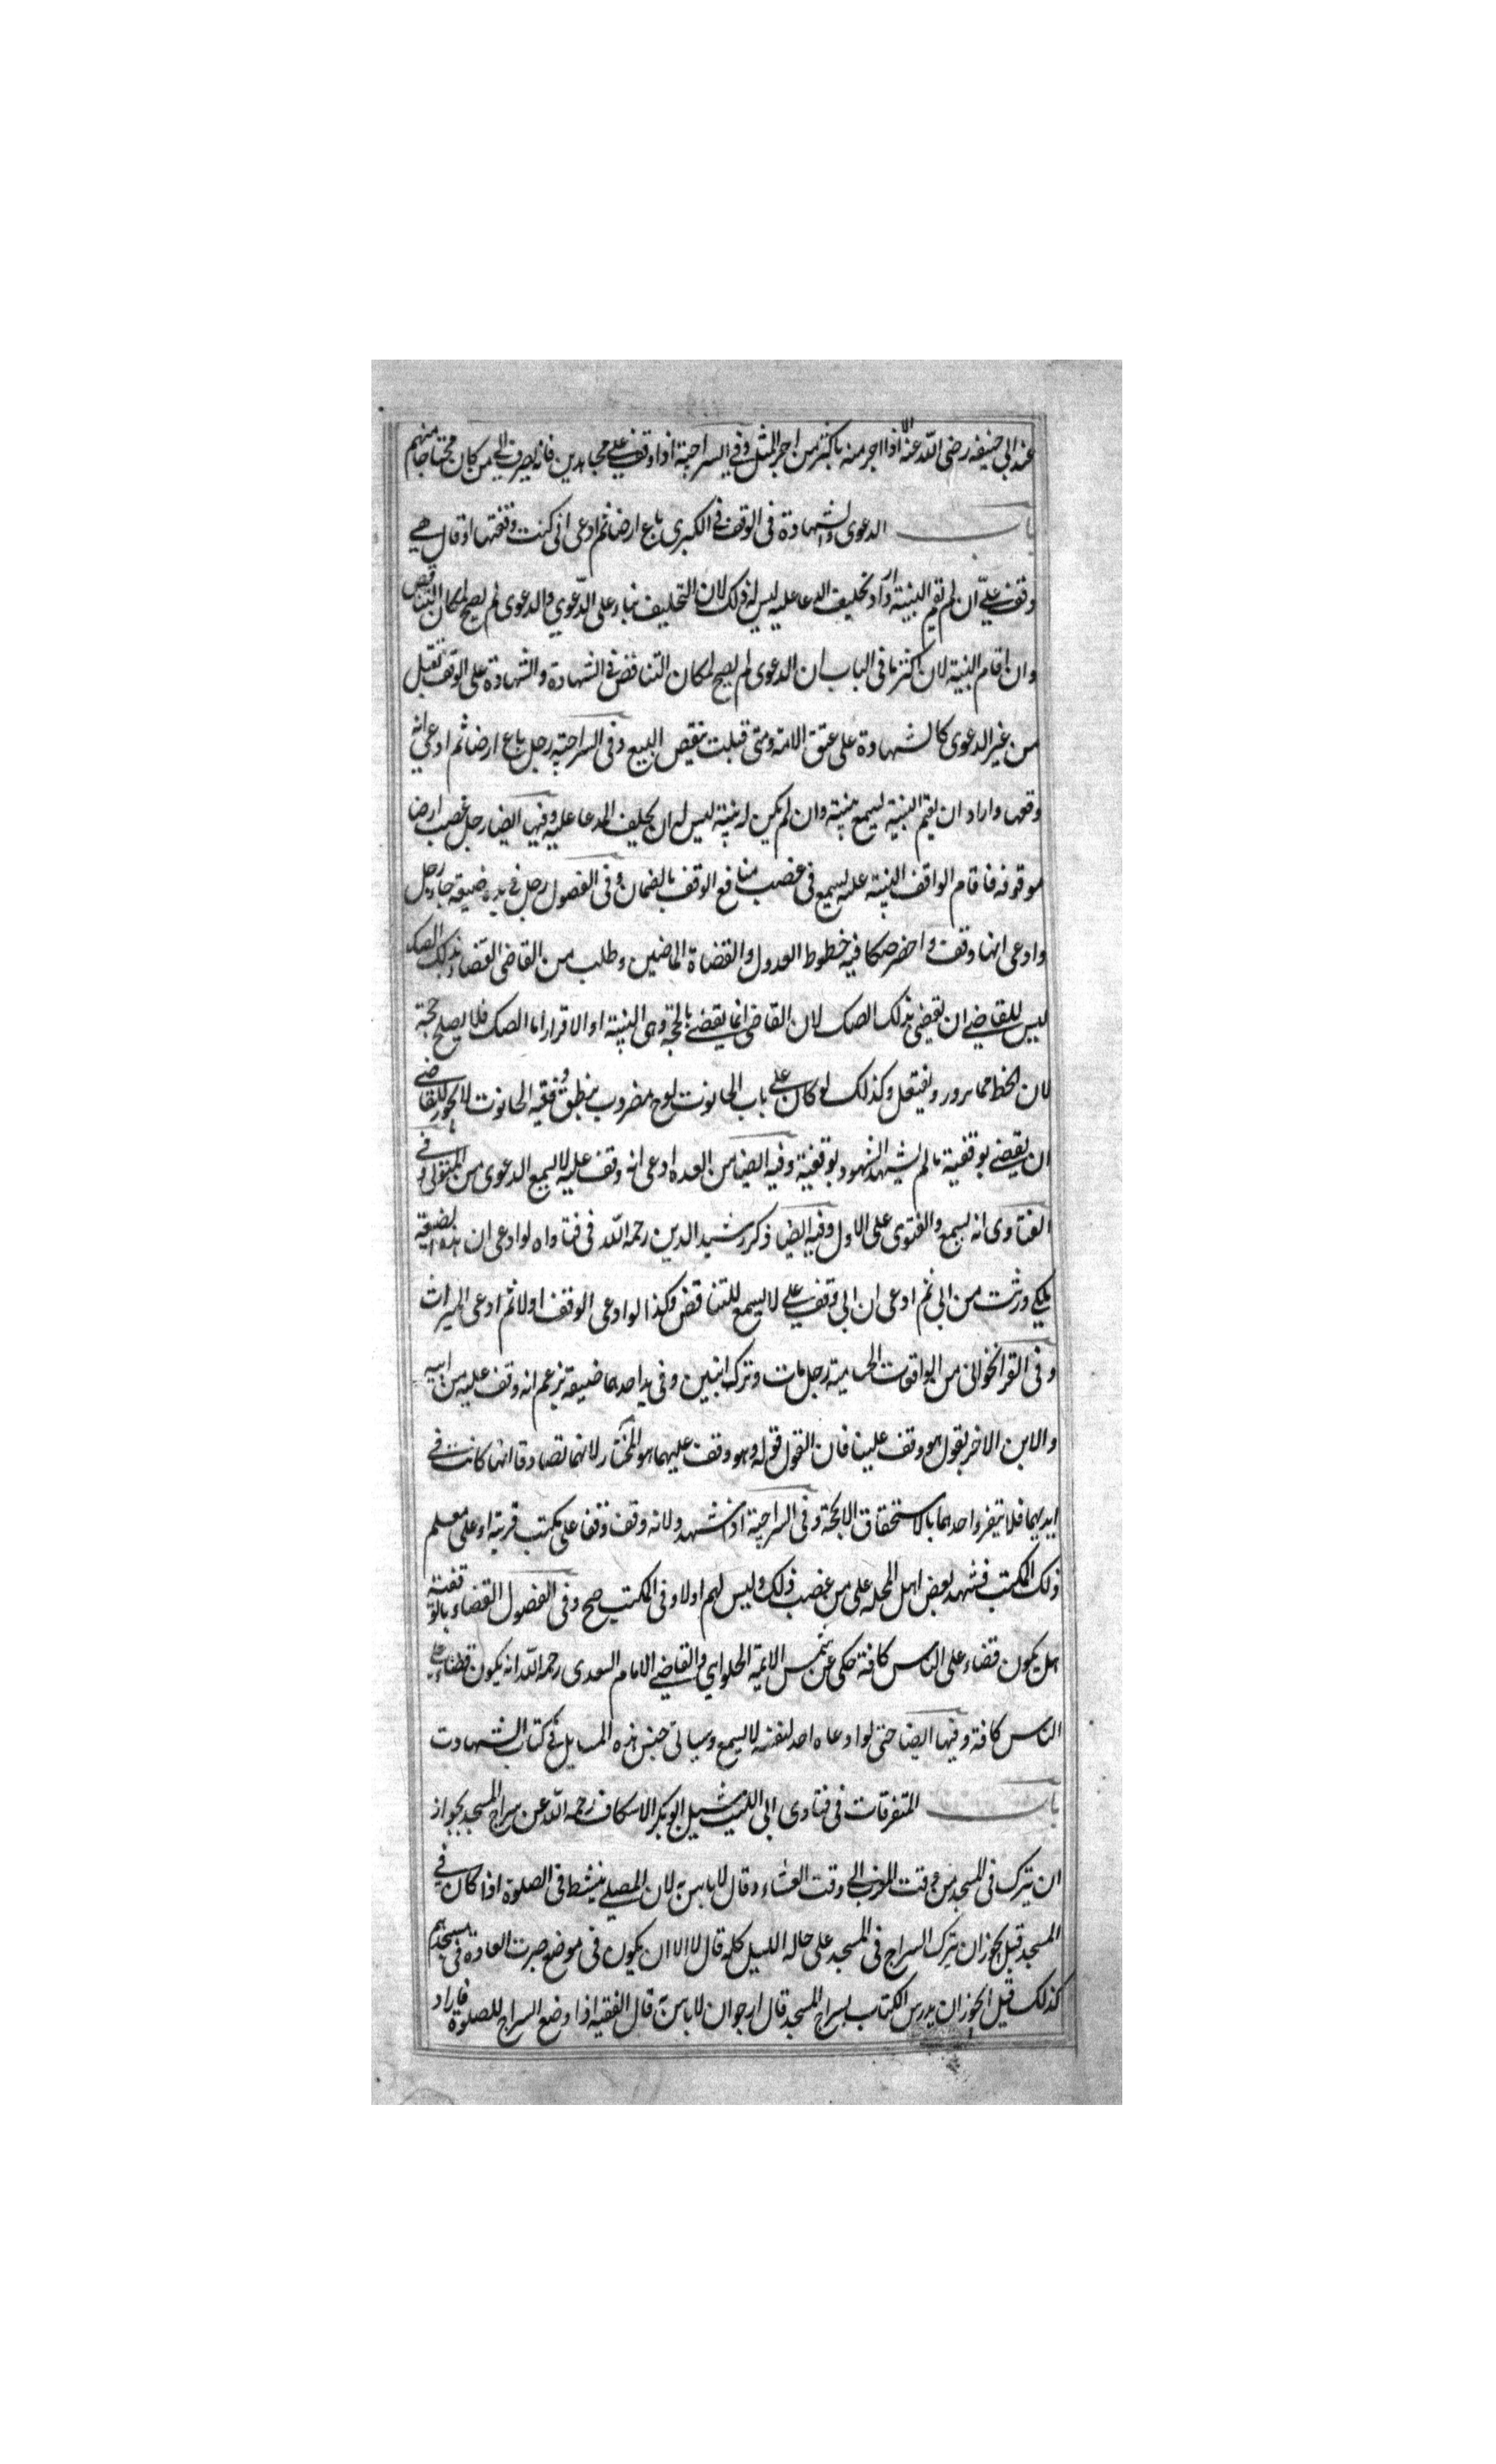 عند ابي حنيفه رضى الله عنه الا اذا اجر منه باكثر من اجر المثل وفي السراجية اذا وقف على مجاهدين فانه يصرف الى من كان محتاجا منهم
باب الدعوى والشهادة فى الوقف فى الكبرى باع ارضا ثم ادعى انى كنت وقفتها او قال هي
وقف علىّ ان لم تقم البينة واراد تحليف المدعا عليه ليس له ذلك لان التحليف بناء على الدّعوي والدعوى لم يصح لمكان التناقض
وان اقام البينة لان اكثر ما فى الباب ان الدعوى لم يصح لمكان التناقض فى الشهادة والشهادة على الوقف تقبل
من غير الدعوى كالشهادة على عتق الامة ومتى قبلت ينقض البيع وفى السراجية رجل باع ارضا ثم ادعى انه
وقفها واراد ان يقيم البينة ليسمع بينته وان لم يكن له بينة ليس له ان يحلف المدعا عليه وفيها ايضا رجل غصب ارضا
موقوفه فاقام الواقف البينة عليه يسمع فى غصب منافع الوقف بالضمان وفى الفصول رجل في يده ضيعة جاء رجل
وادعى انها وقف واحضر صكا فيه خطوط العدول والقضاة الماضين وطلب من القاضى القضاء بذلك الصك
ليس للقاضي ان يقضى بذلك الصك لان القاضى انما يقضي بالحجة وهى البينة او الاقرار اما الصك فلا يصلح حجة
لان الخط مما يزور ويفتعل وكذلك لو كان على باب الحانوت لوح مضروب ينطق وقفية الحانوت لا يجوز للقاضي
ان يقضي بوقفية مالم يشهد الشهود بوقفية وفيه ايضا من العده ادعى انه وقف عليه لا يسمع الدعوى من المتولى وفي
الفتاوى انه يسمع والفتوى على الاول وفيه ايضا ذكر رشيد الدين رحمه الله فى فتاواه لو ادعى ان هذه الضيعة
ملكي ورثت من ابي ثم ادعى ان ابى وقف علي لا يسمع للتناقض وكذا لو ادعى الوقف اولا ثم ادعى الميراث
وفى القراخوانى من الواقعات الحسامية رجل مات وترك ابنين وفى يد احدهما ضيعة يزعم انه وقف عليه من ابيه
والابن الاخر يقول هو وقف علينا فان القول قوله وهو وقف عليهما هو المختار لانهما تصادقا انها كانت في
ايديهما فلا ينفرد احدهما بالاستحقاق الا بحجة وفى السراجية اذا شهدوا انه وقف وقفا على مكتب قرية او على معلم
ذلك المكتب فشهد بعض اهل المحله على من غصب ذلك وليس لهم اولاد فى المكتب صح وفى الفصول القضاء بالوقفية
هل يكون قضاء على الناس كافة حكى عن شمس الائمة الحلوايي والقاضي الامام السعدى رحمه الله انه يكون قضاء على
الناس كافة وفيها ايضا حتى لو ادعاه احد لنفسه لا يسمع وسياتى جنس هذه المسايل في كتاب الشهادت
باب المتفرقات فى فتاوى ابى الليث سيل ابو بكر الاسكاف رحمه الله عن سراج المسجد يجوز
ان يترك فى المسجد من وقت المغرب الى وقت العشاء وقال لا باس به لان المصلي ينشط فى الصلوة اذا كان في
المسجد قيل يجوز ان يترك السراج فى المسجد على حاله الليل كله قال لا الا ان يكون فى موضع جرت العادة فى مسجدهم
كذلك قيل ايجوز ان يدرس الكتاب بسراج المسجد قال ارجو ان لا باس به قال الفقيه اذا وضع السراج للصلوة فاراد